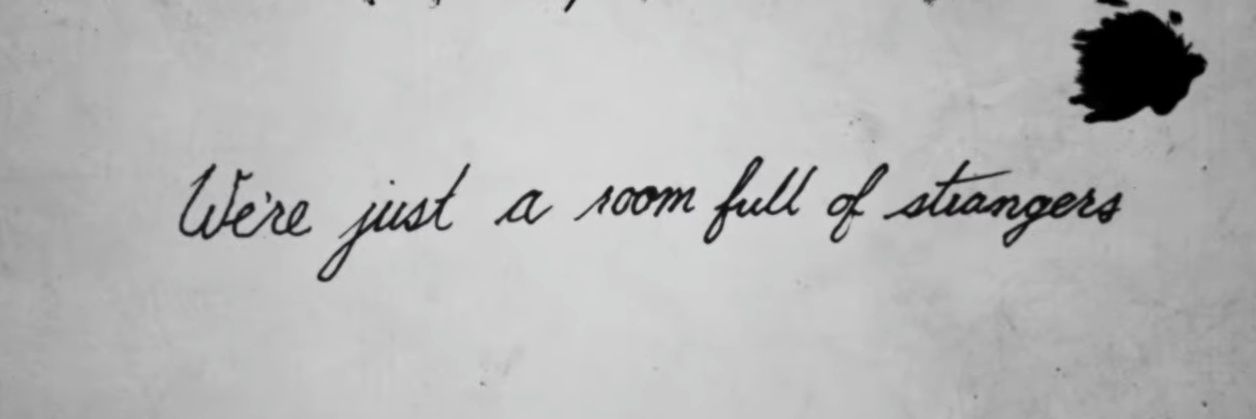 We're just a room full of strangers